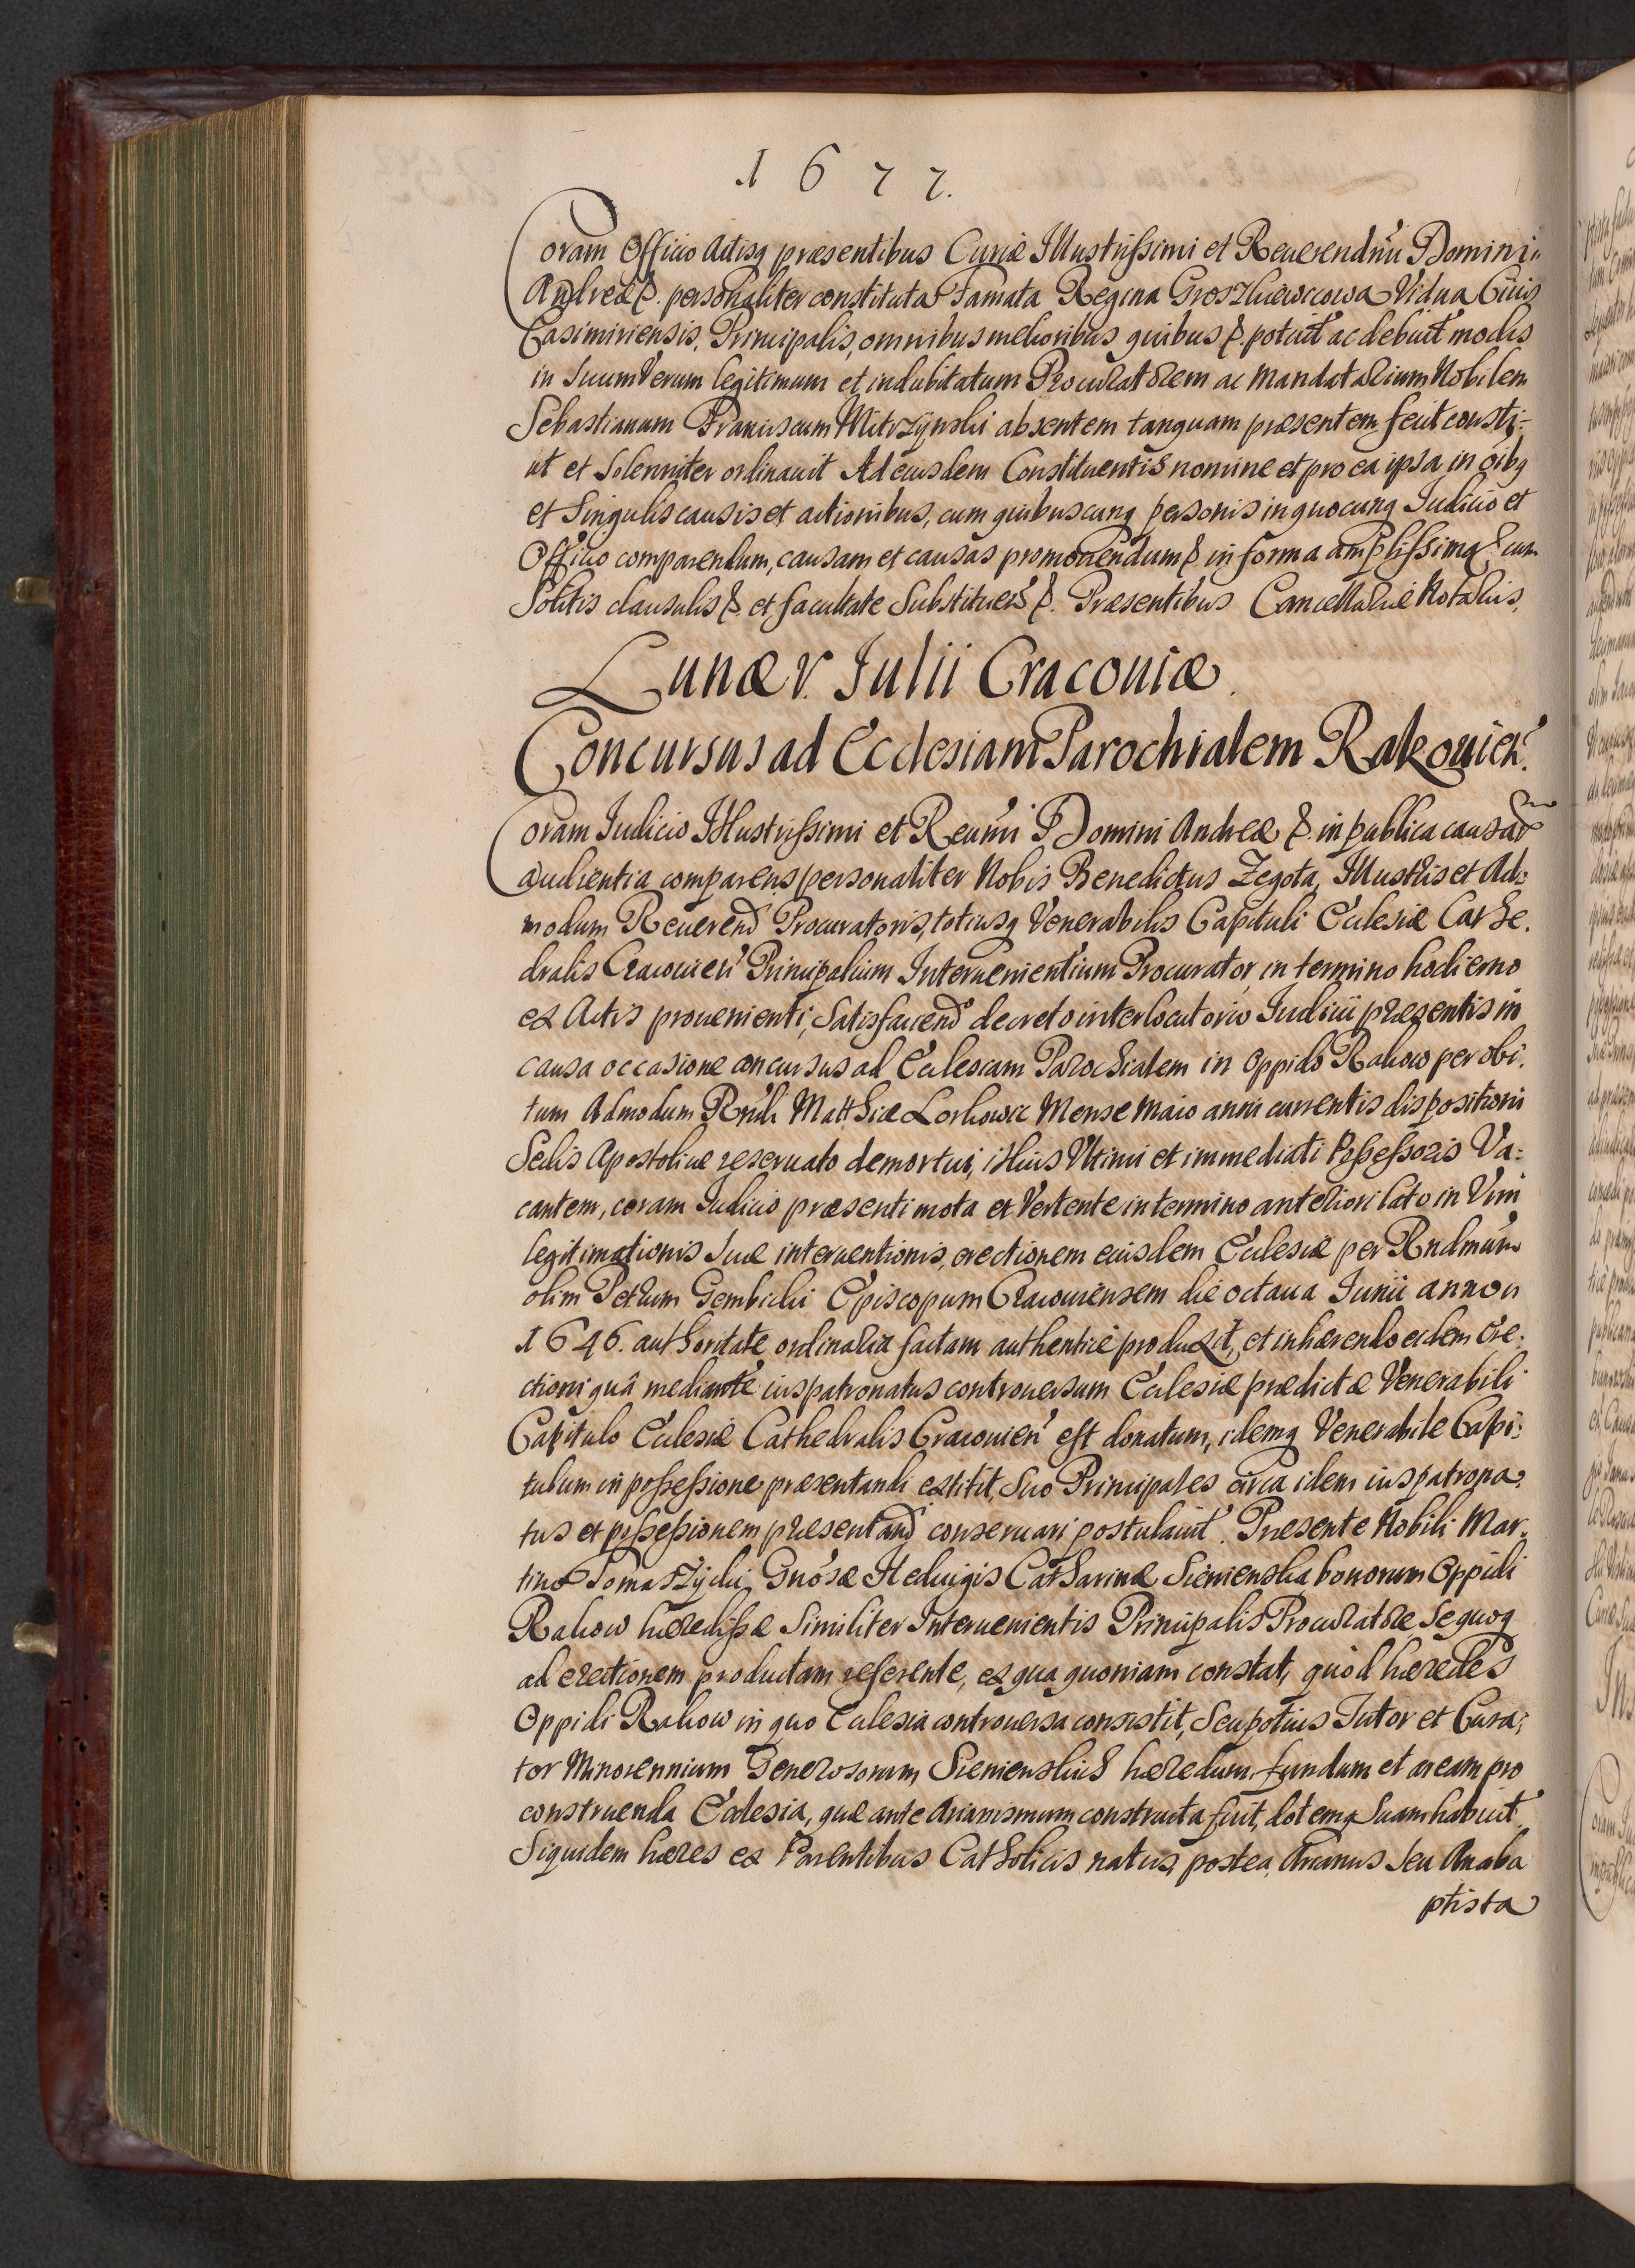 1677.
Coram Officio Actisq praesentibus Curiae Illustrissimi et Reuerendmi Domini
Andreae &. personaliter constituta Famata Regina Groszkiewicowa Vidua Ciuis
Casimiriensis, Principalis, omnibus melioribus quibus &. potuit ac debuit modis
in Suum Verum legitimum et indubitatum Procuratorem ac Mandatarium Nobilem
Sebastianum Franciscum Mitrzynski absentem tanquam praesentem fecit consti-
ut et Solenniter ordinauit Ad eiusdem Constituentis nomine et pro ea ipsa in oibq
et Singulis causis et actionibus, cum quibuscunq personis in quocunq Iudicio et
Officio comparendum, causam et causas promouendum &. in forma amplissima & cum
Solitis clausulis &. et facultate Substituen &. Praesentibus Cancellariae Notariis.
Lunae v. Iulii Cracouiae.
Concursus ad Ecclesiam Parochialem Rakouien.
Coram Iudicio Illustrissimi et Reumi D Domini Andreae &. in publica causar
audientia comparens personaliter Nobis Benedictus Zegota, Illustris et Ad:
modum Reuerend Procuratoris, totiusq Venerabilis Capituli Ecclesiae Cathe.
dralis Cracouien Principalium Interuenientium Procurator, in termino hodierno
ex Actis prouenienti, Satisfaciend decreto interlocutorio Iudicii praesentis in
causa occasione concursus ad Ecclesiam Parochialem in Oppido Rakow per obi.
tum Admodum Rndi Matthiae Lorkowic Mense Maio anni currentis dispositioni
Sedis Apostolicae reseruato demortui, illius Vltimi et immediati Possessoris Va:
cantem, coram Iudicio praesenti mota et Vertente in termino anteriori lato in Vim
legitimationis Suae interuentionis, erectionem eiusdem Ecclesiae per Rndmum
olim Petrum Gembicki Episcopum Cracouiensem die octaua Iunii anno
1646. authoritate ordinaria factam authenticè produxit, et inhaerendo eidem ere:
ctioni quâ mediante iuspatronatus controuersum Ecclesiae praedictae Venerabili
Capitulo Ecclesiae Cathedralis Cracouien est donatum, idemq Venerabile Capi:
tulum in possessione praesentandi extitit, Suo Principales circa idem iuspatrona.
tus et possessionem praesentand conseruari postulauit. Praesente Nobili Mar.
tino Tomaszycki Gnosae Heduigis Catharinae Sienienska bonorum Oppidi
Rakow haeredissae Similiter Interuenientis Principalis Procuratore Se quoq
ad erectionem productam referente, ex qua quoniam constat, quòd haeredes
Oppidi Rakow in quo Ecclesia controuersa consistit, Seu potius Tutor et Cura:
tor Minorennium Generosorum Sienienskich haeredum, fundum et aream pro
construenda Ecclesia, quae ante Arianismum constructa fuit, dotemq Suam habuit
Siquidem haeres ex Parentibus Catholicis natus, postea, Arianus Seu Anaba
ptista